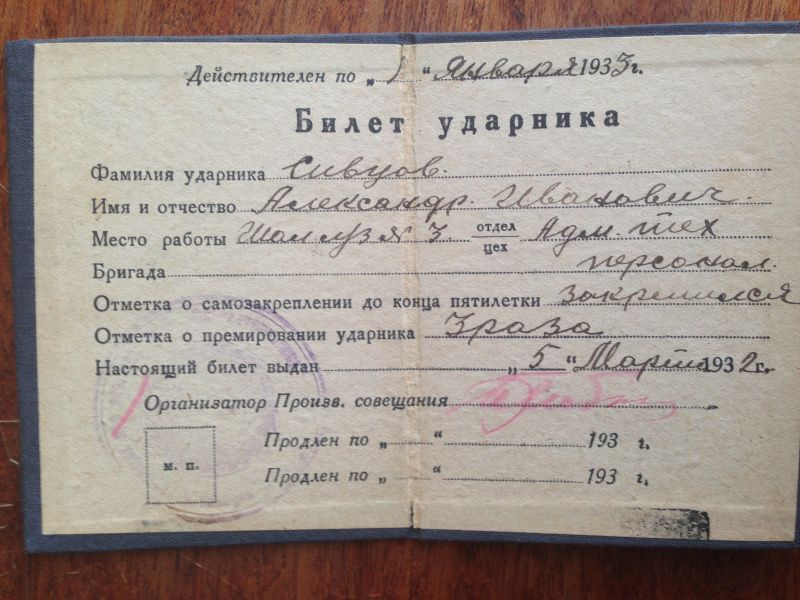 Действителен по „ 1 “ Января 1933 г.
Билет ударника
Фамилия ударника Сивцов.
Имя и отчество Александр. Иванович.
Место работы 3 отдел цех Адм. тех
Бригада персонал.
Отметка о самозакреплении до конца пятилетки закрепился
Отметка о премировании ударника 3 раза
Настоящий билет выдан „ 5 “ Марта 1932 г.
Организатор Произв. совещания
Продлен по „ “ 193 г.
м. п.
Продлен по „ “ 193 г.